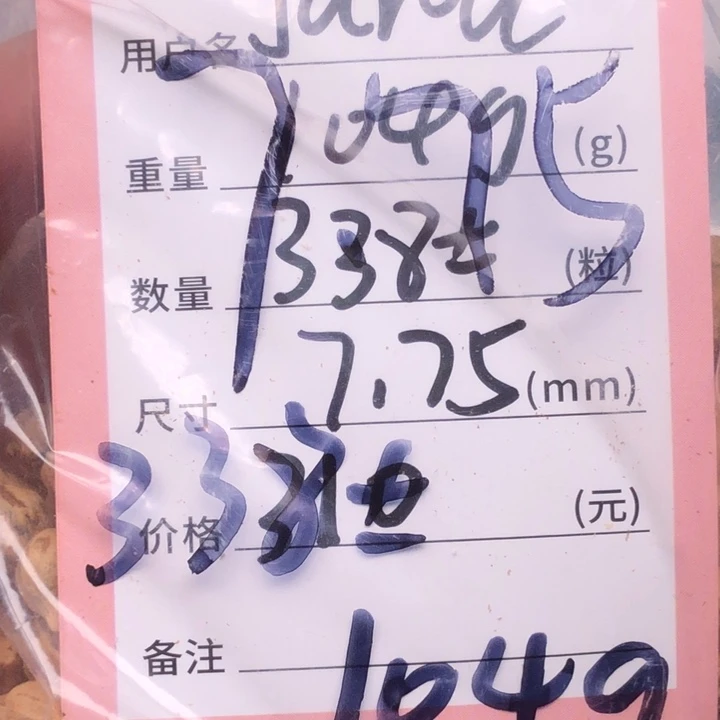 用户名 Jana
重量 104g (g)
数量 338± (粒)
尺寸 7.75 (mm)
价格 (元)
备注
7.75
338±
104g